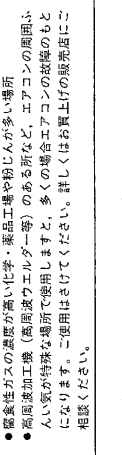 ●腐食性ガスの濃度が高い化学・薬品工場や粉じんが多い場所
●高周波加工機（高周波ウエルダー等）のある所など、エアコンの周囲ふ
んい気が特殊な場所で使用しますと、多くの場合エアコンの故障のもと
になります。ご使用はさけてください。詳しくはお買上げの販売店にご
相談ください。